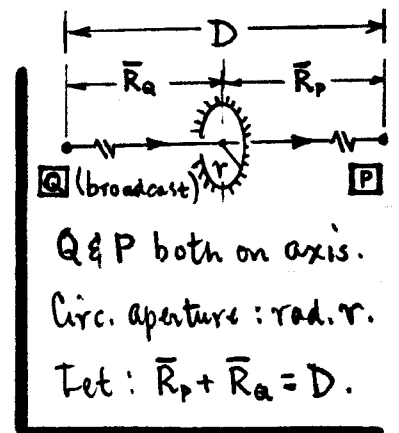 D
R̄Q R̄P
r
Q (broadcast) P
Q & P both on axis.
Circ. aperture : rad. r.
Let : R̄P + R̄Q = D.